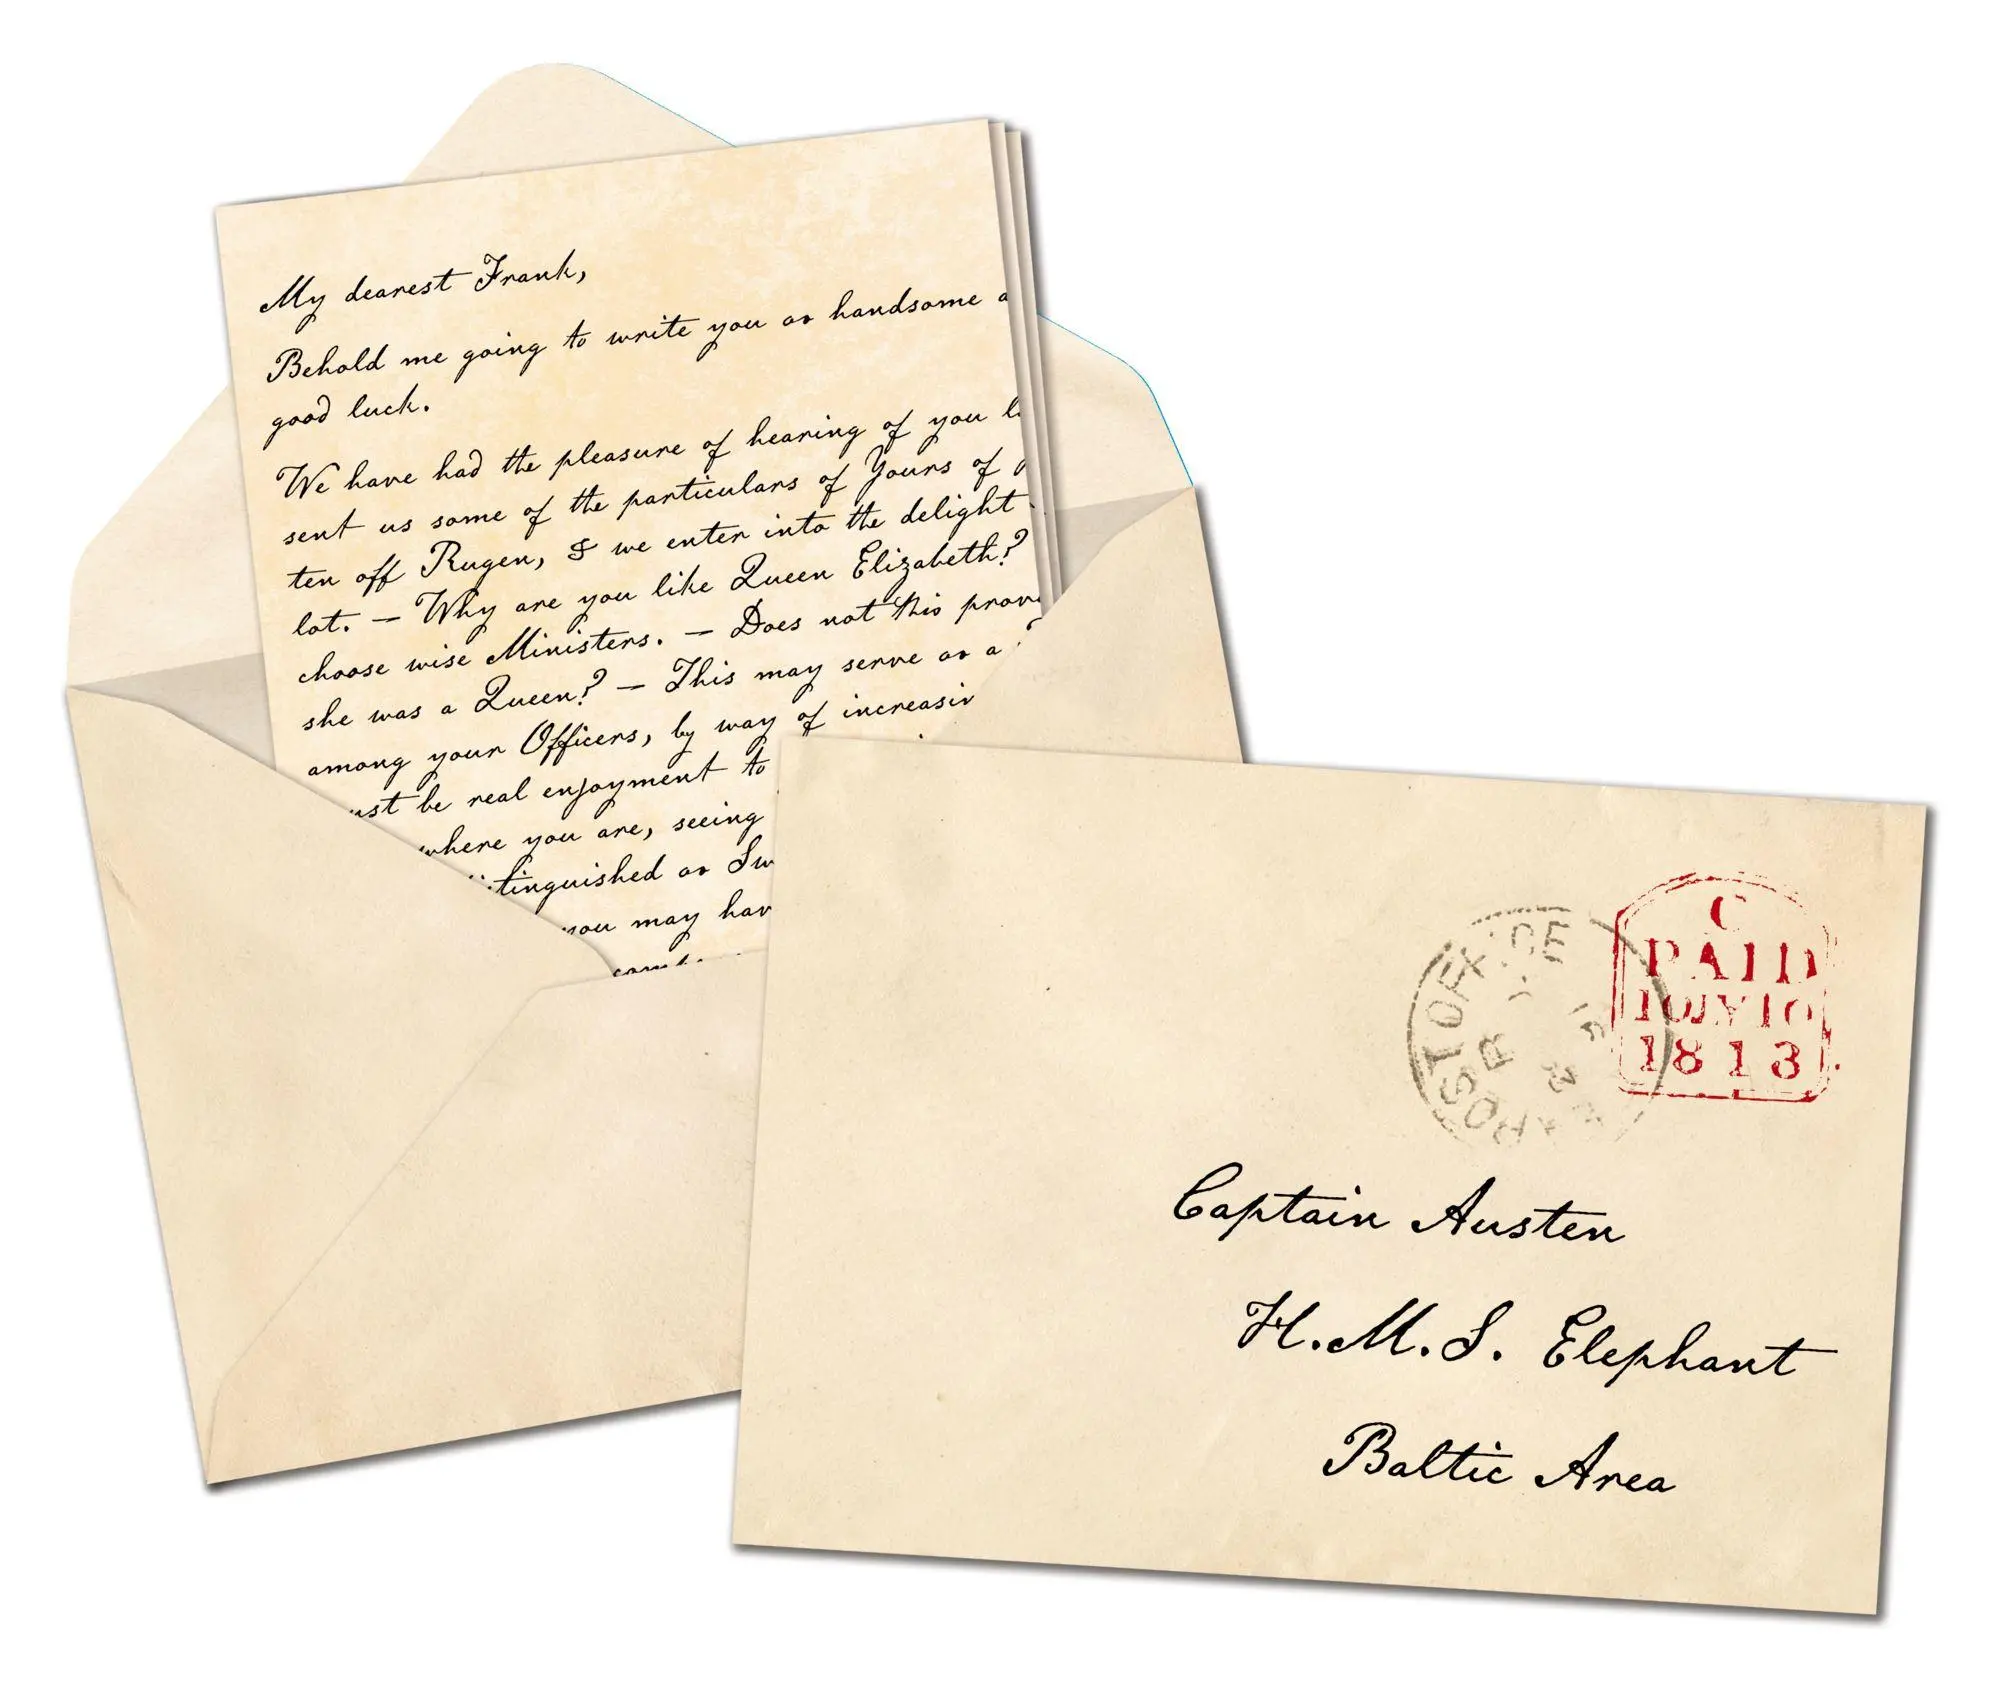 My dearest Frank,
Behold me going to write you as handsome a
good luck.
We have had the pleasure of hearing of you l
sent us some of the particulars of Yours of
ten off Rugen, & we enter into the delight
lot. — Why are you like Queen Elizabeth?
choose wise Ministers. — Does not this prov
she was a Queen? — This may serve as a
among your Officers, by way of increasin
ust be real enjoyment to
where you are, seeing
tinguished as Sw
you may hav
C
PAID
10JY10
1813
POST OFFICE
Captain Austen
H.M.S. Elephant
Baltic Area